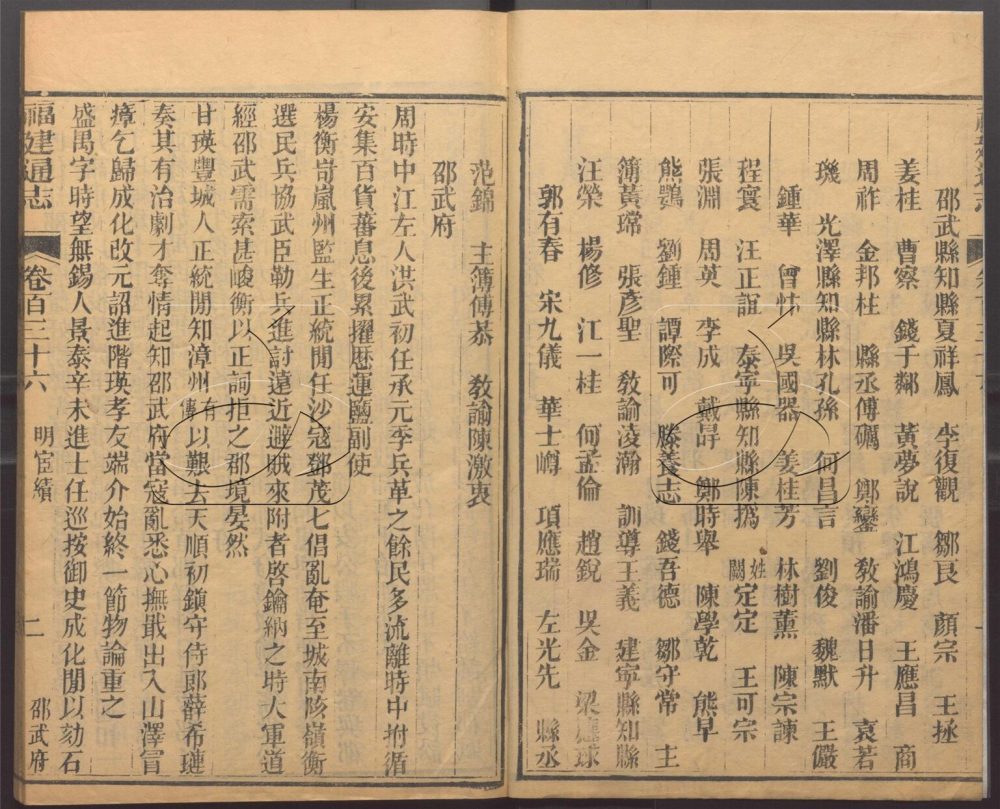 邵武縣知縣夏祥鳳 李復觀 鄒良 顏宗 王拯
姜桂 曹察 錢于鄰 黃夢說 江鴻慶 王應昌 商
周祚 金邦柱 縣丞傅礪 鄭鑾 教諭潘日升 袁若
璣 光澤縣知縣林孔孫 何昌言 劉俊 魏默 王儼
鍾華 曾忭 吳國器 姜桂芳 林樹薰 陳宗諫
程寰 汪正誼 泰寧縣知縣陳撝 姓闕定定 王可宗
張淵 周英 李成 戴昇 鄭時舉 陳學乾 熊早
熊鶚 劉鍾 譚際可 滕養志 錢吾德 鄒守常 主
簿黃瑺 張彥聖 教諭淩瀚 訓導王義 建寧縣知縣
汪榮 楊修 江一桂 何孟倫 趙銳 吳金 梁廷球
郭有春 宋九儀 華士嶟 項應瑞 左光先 縣丞
范錦 主簿傅恭 教諭陳激衷
邵武府
周時中江左人洪武初任承元季兵革之餘民多流離時中拊循
安集百貨蕃息後累擢歷運鹽副使
楊衡岢嵐州監生正統閒任沙寇鄧茂七倡亂奄至城南陔嶺衡
選民兵協武臣勒兵進討遠近避賊來附者啓鑰納之時大軍道
經邵武需索甚峻衡以正詞拒之郡境晏然
甘瑛豐城人正統閒知漳州有傳以艱去天順初鎮守侍郎薛希璉
奏其有治劇才奪情起知邵武府當寇亂悉心撫戢出入山澤冒
瘴乞歸成化改元詔進階瑛孝友端介始終一節物論重之
盛禺字時望無錫人景泰辛未進士任巡按御史成化閒以劾石
福建通志 卷百三十六 明宦績 二 邵武府